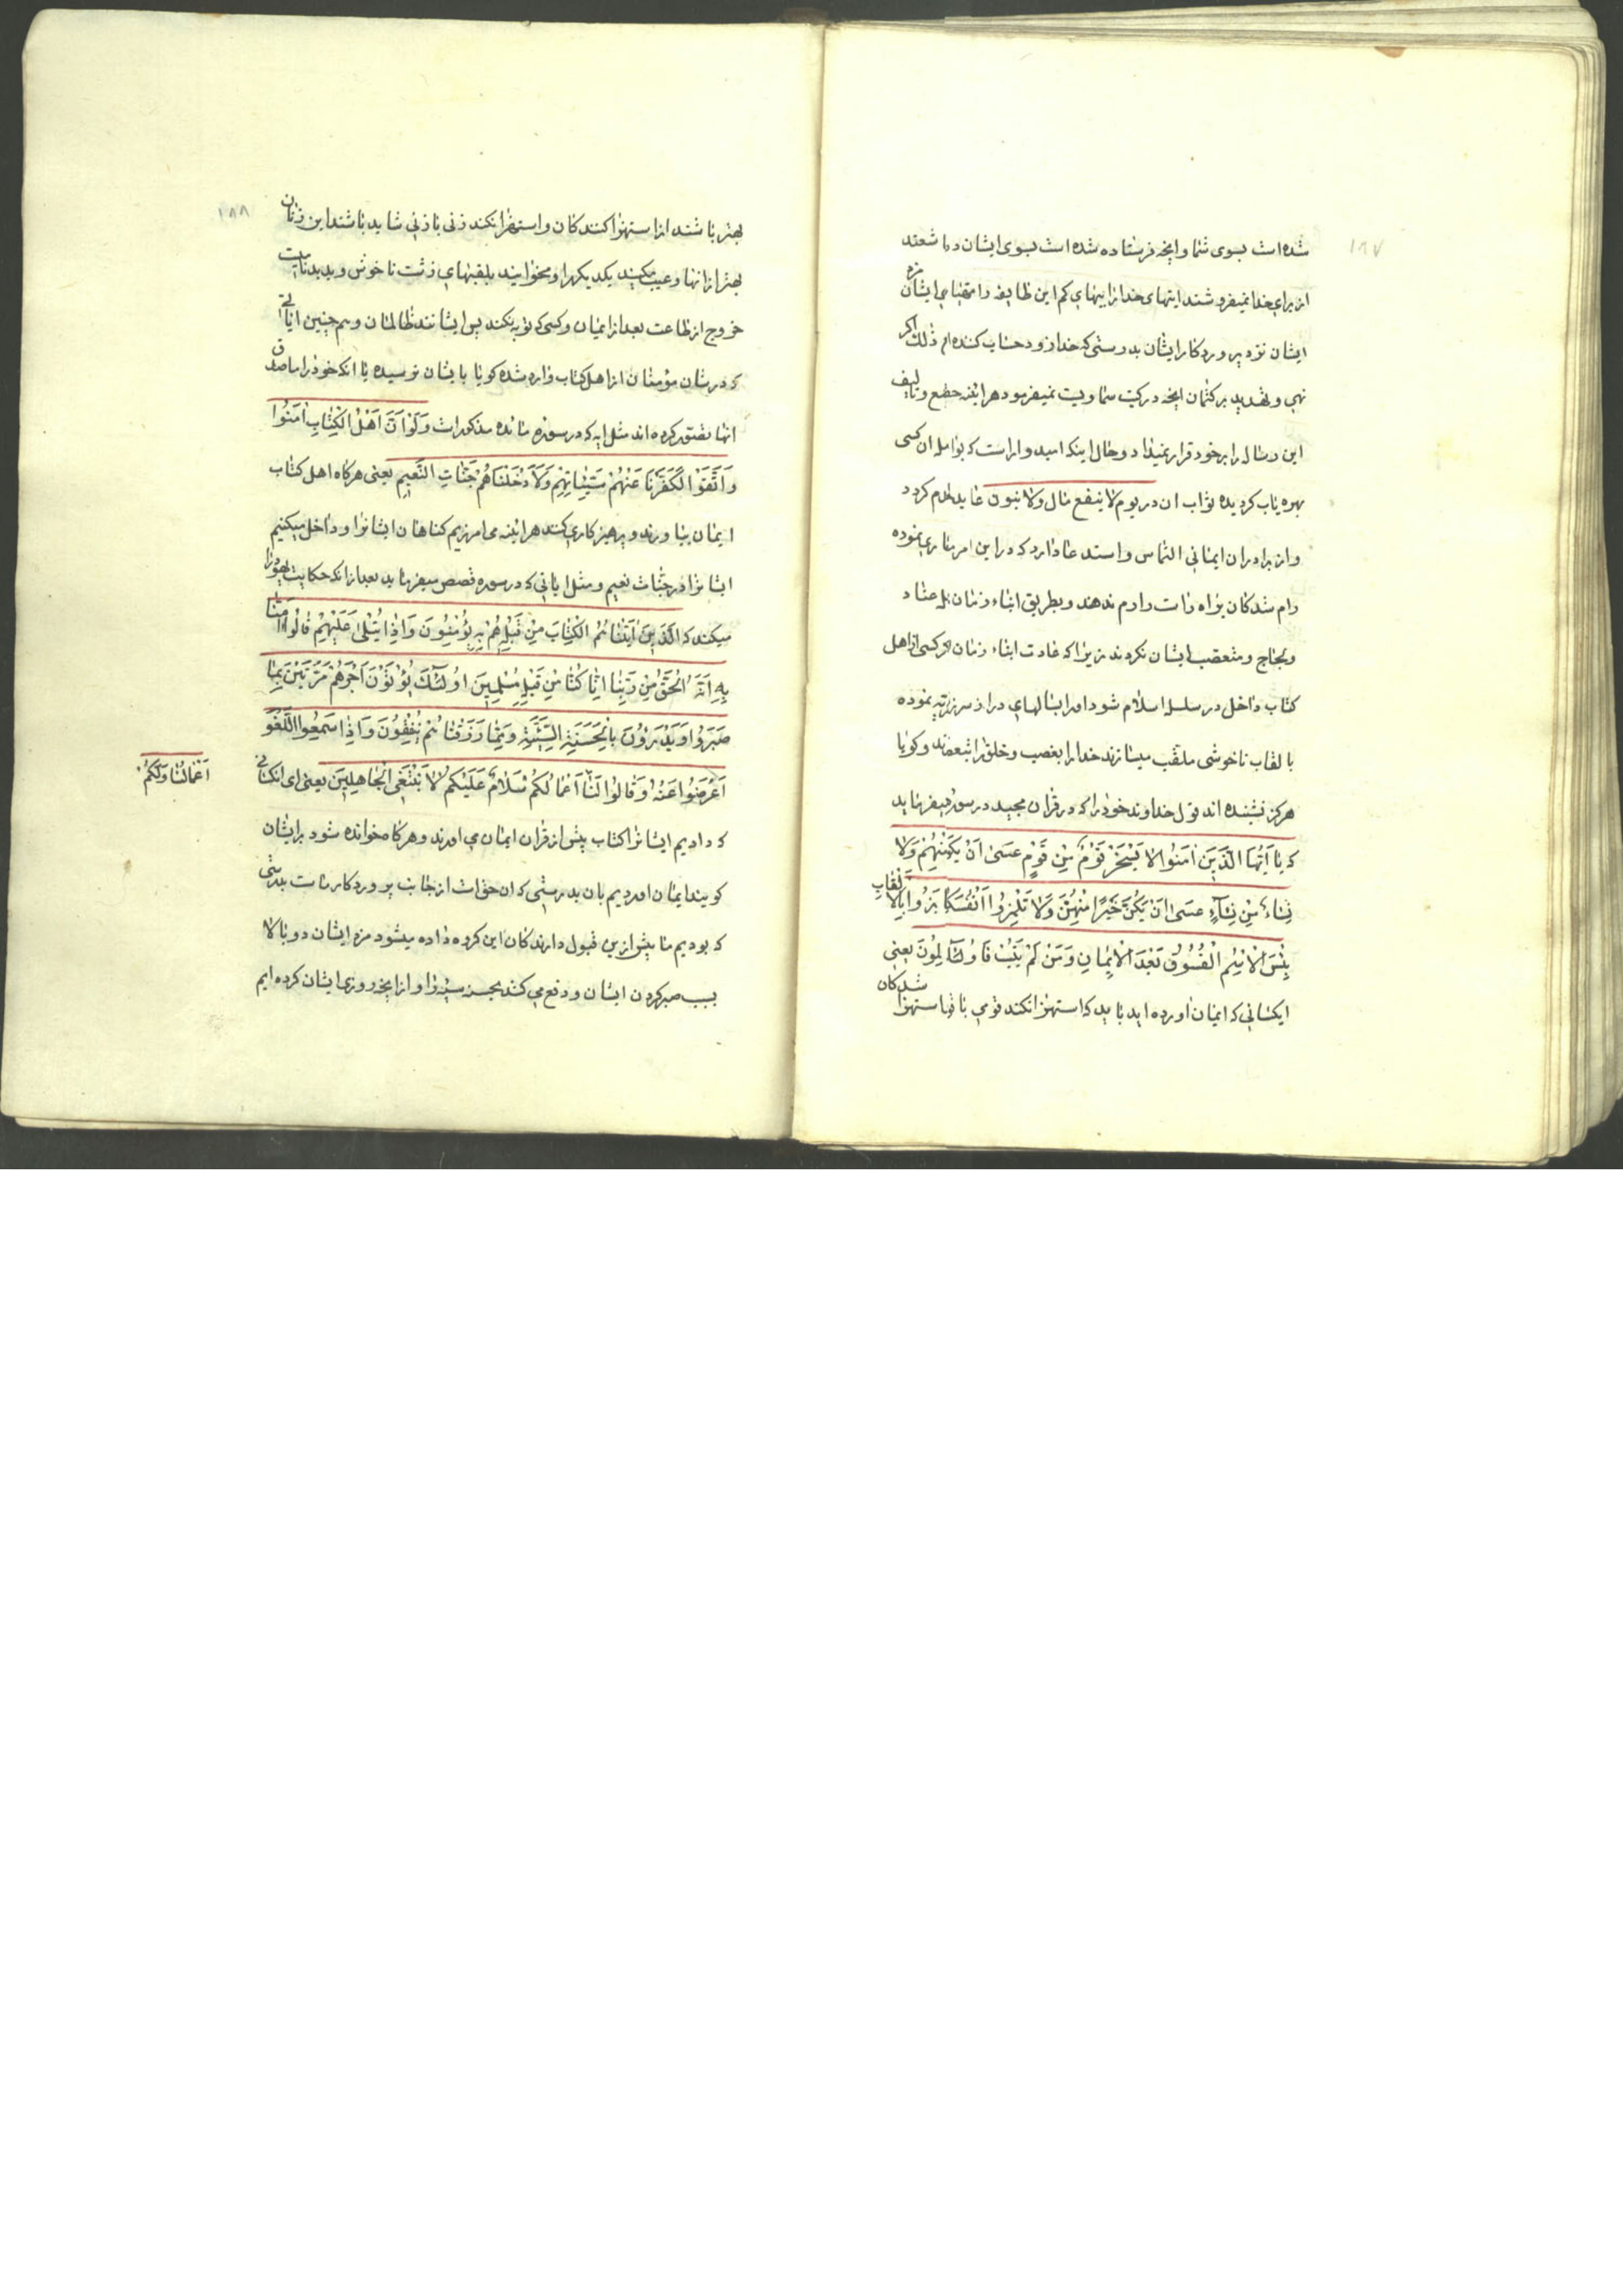 ١٨٧
شده است بسوی شما و انچه فرستاده شده است بسوی ایشان در ما شعند
از برای خدا نمیفروشند ایتهای خدا را ببهای کم این طایفه را مزد ایشان
ایشان نزد پروردکار ایشان بدرستی که خدا زود حساب کننده اکر
نهی و تهدید بر کتمان انچه در کتب سماویست نمیفرمود هراینه جمع و تالیف
این رساله را بر خود قرار نمیداد و حال اینکه امیدوار است که بواسطه ان کسی
بهره یاب کردیده ثواب ان در یوم لا ینفع مال ولا بنون عاید کردد
و از برادران ایمانی التماس و استدعا دارد که در این امر یاری نموده
رام شدکان براه راست را رم ندهند و بطریق ابناء زمان عناد
و لجاج و تعصب ایشان نکردند زیرا که عادت ابناء زمان کسی از اهل
کتاب داخل در سلسله اسلام شود او را بسالهای دراز سرزنش نموده
بالقاب ناخوشی ملقب میسازند خدا را بغضب و خلق را بتعصب و کویا
هرکز نشنیده اند قول خداوند خود را که در قران مجید در سوره میفرماید
که یا اَیُّهَا الَّذینَ امَنُوا لا یَسْخَرْ قَوْمٌ مِنْ قَوْمٍ عَسیٰ اَنْ یَکُ مِنْهُمْ وَلا
نِساءٌ مِنْ نِساءٍ عَسیٰ اَنْ یَکُنَّ خَیْرًا مِنْهُنَّ وَلا تَلْمِزُوا اَنْفُسَکُمْ بَزُوا بِالاَلْقابِ
بِئْسَ الاِسْمُ الْفُسُوقُ بَعْدَ الاِیمانِ وَمَنْ لَمْ یَتُبْ فَاُولئِکَ لِمُونَ یعنی
ایکسانی که ایمان اورده اید باید که استهزا نکند قومی با قو استهزا شدکان
١٨٨
بهتر باشند از استهزا کنندکان و استهزا نکند زنی با زنی شاید باشند این زنان
بهتر از انها و عیب مکنید یکدیکر را و مخوانید بلقبهای زشت ناخوش و بد بد نامیست
خروج از طاعت بعد از ایمان و کسی که توبه نکند پس ایشانند ظالمان و هم چنین ایاتی
که در شان مؤمنان از اهل کتاب وارد شده کویا بایشان نرسیده یا انکه خود را مصداق
انها تصور کرده اند مثل ایه که در سوره مائده مذکور است وَلَوْ اَنَّ اَهْلَ الْکِتابِ امَنُوا
وَاتَّقَوْا لَکَفَّرْنا عَنْهُمْ سَیِّئاتِهِمْ وَلاَدْخَلْناهُمْ جَنّاتِ النَّعیمِ یعنی هرکاه اهل کتاب
ایمان بیاورند و پرهیزکاری کنند هراینه می امرزیم کناهان ایشانرا و داخل میکنیم
ایشانرا در جنات نعیم و مثل ایاتی که در سوره قصص میفرماید بعد از انکه حکایت یهود را
میکند که الَّذینَ اتَیْناهُمُ الْکِتابَ مِنْ قَبْلِهِ هُمْ بِهِ یُؤْمِنُونَ وَاِذا یُتْلیٰ عَلَیْهِمْ قالُوا امَنّا
بِهِ اِنَّهُ الْحَقُّ مِنْ رَبِّنا اِنّا کُنّا مِنْ قَبْلِهِ مُسْلِمینَ اُولئِکَ یُؤْتَوْنَ اَجْرَهُمْ مَرَّتَیْنِ بِما
صَبَرُوا وَیَدْرَؤُنَ بِالْحَسَنَةِ السَّیِّئَةَ وَمِمّا رَزَقْناهُمْ یُنْفِقُونَ وَاِذا سَمِعُوا اللَّغْوَ
اَعْرَضُوا عَنْهُ وَقالُوا لَنا اَعْمالُکُمْ سَلامٌ عَلَیْکُمْ لا نَبْتَغِی الْجاهِلینَ یعنی ای انکسانی
اَعْمالُنا وَلَکُمْ
که دادیم ایشانرا کتاب پیش از قران ایمان می اورند و هرکاه خوانده شود بر ایشان
کویند ایمان اوردیم بان بدرستی که ان حق است از جانب پروردکار ماست بدرستی
که بودیم ما پیش ازین قبول دارندکان این کروه داده میشود مزد ایشان دو بالا
بسبب صبر کردن ایشان و دفع می کنند بحسنه سیئه را و از انچه روزی ایشان کرده ایم